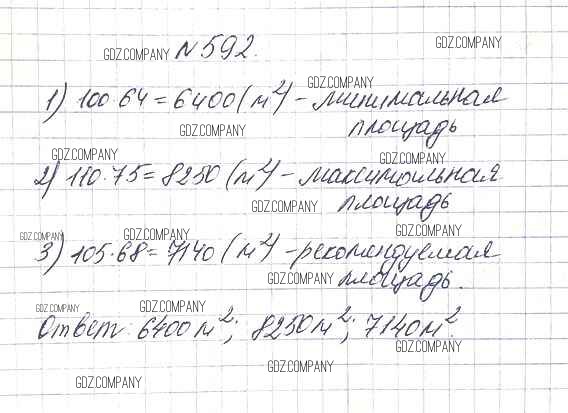 GDZ.COMPANY №592. GDZ.COMPANY
GDZ.COMPANY
1) 100·64=6400(м²) - минимальная
GDZ.COMPANY площадь
GDZ.COMPANY GDZ.COMPANY
2) 110·75=8250 (м²) - максимальная
GDZ.COMPANY площадь
GDZ.COMPANY GDZ.COMPANY GDZ.COMPANY
3) 105·68=7140 (м²) - рекомендуемая
GDZ.COMPANY площадь.
GDZ.COMPANY GDZ.COMPANY
Ответ: 6400м²; 8250м²; 7140м².
GDZ.COMPANY
GDZ.COMPANY
GDZ.COMPANY